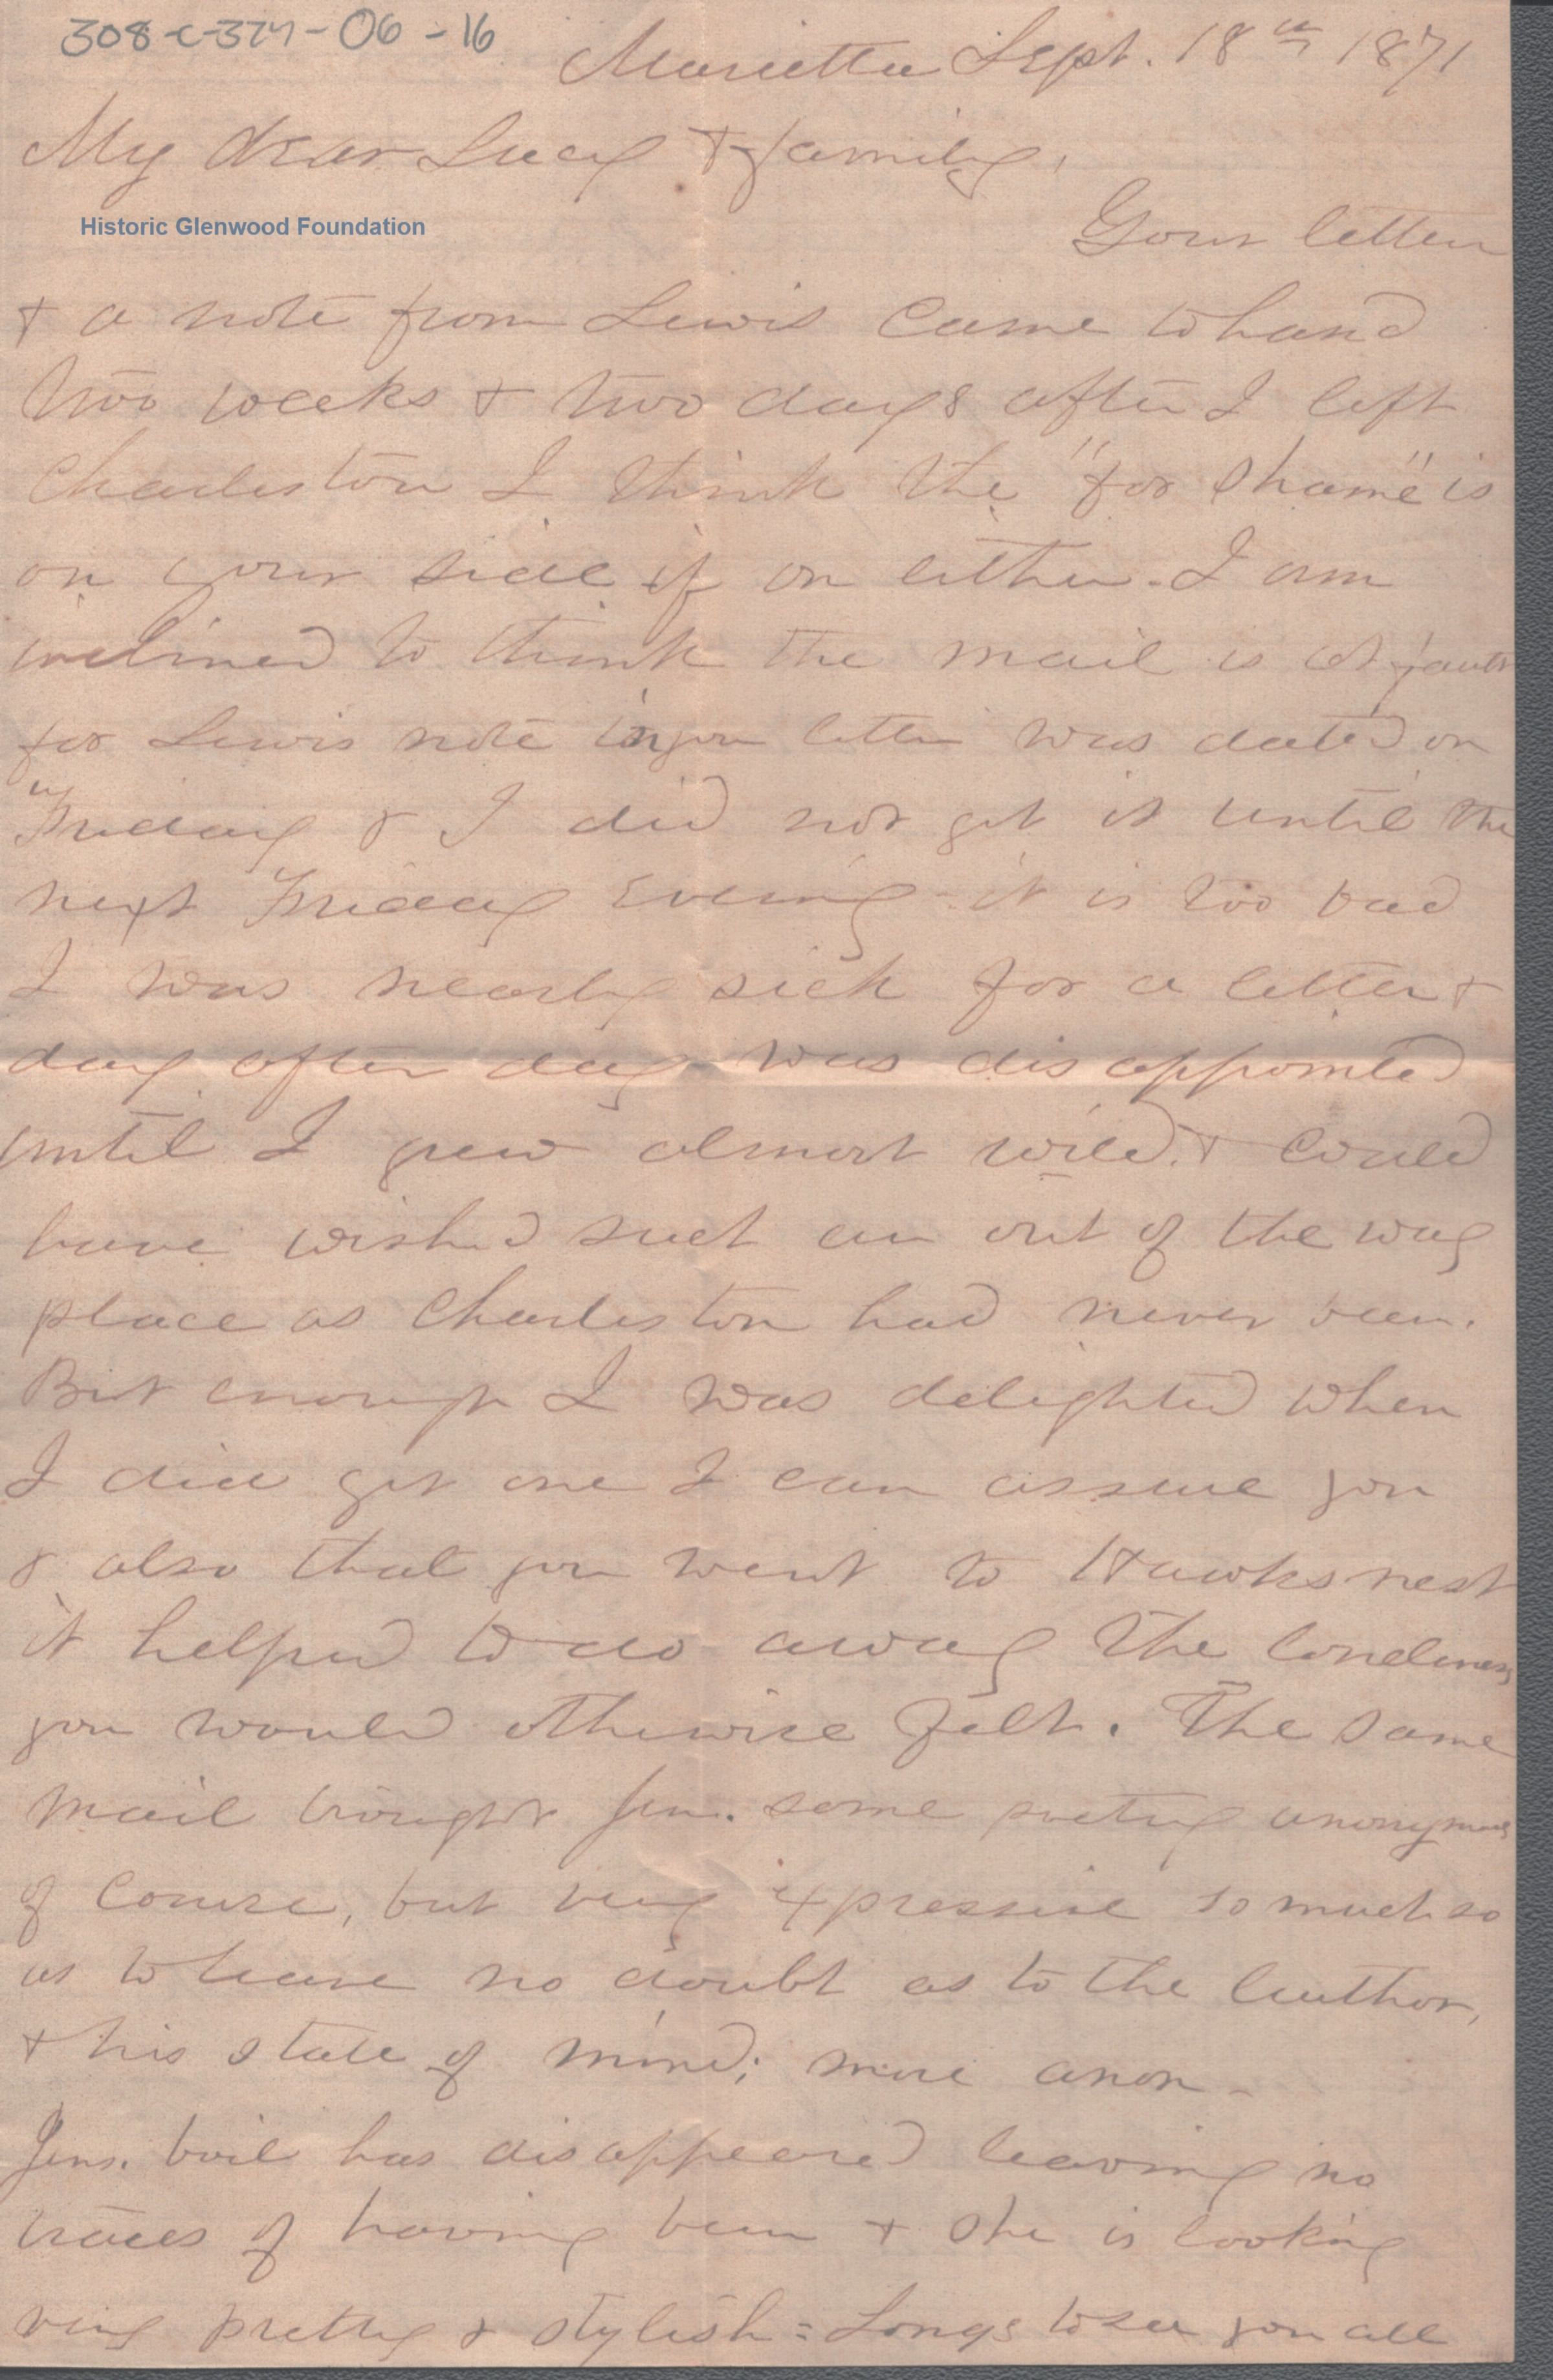 308-c-374-06-16
Marietta Sept. 18th 1871
My dear Lucy & family,
Historic Glenwood Foundation
Your letter
& a note from Lewis came to hand
two weeks & two days after I left
Charleston I think the "for shame" is
on your side if on either. I am
inclined to think the mail is at fault
for Lewis note in your letter was dated on
Friday & I did not get it until the
next Friday evening - it is too bad
I was nearly sick for a letter &
day after day was disappointed
until I grew almost wild & could
have wished such an out of the way
place as Charleston had never been.
But enough I was delighted when
I did get one I can assure you
& also that you went to Hawksnest
it helped to do away the loneliness
you would otherwise felt. The same
mail brought Jen. some poetry anonymous
of course, but very expressive so much so
as to leave no doubt as to the Author,
& his state of mind; more anon -
Jens. boil has disappeared leaving no
traces of having been & she is looking
very pretty & stylish = Longs to see you all